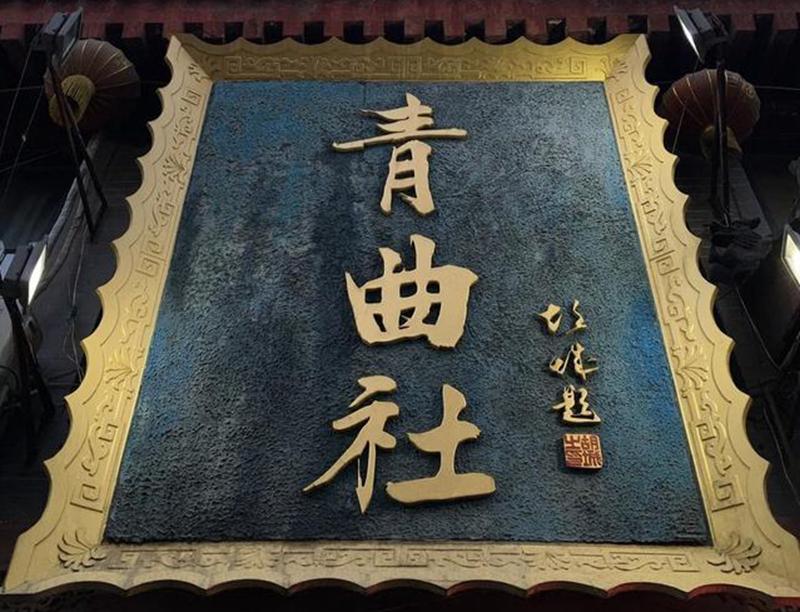 青曲社
题